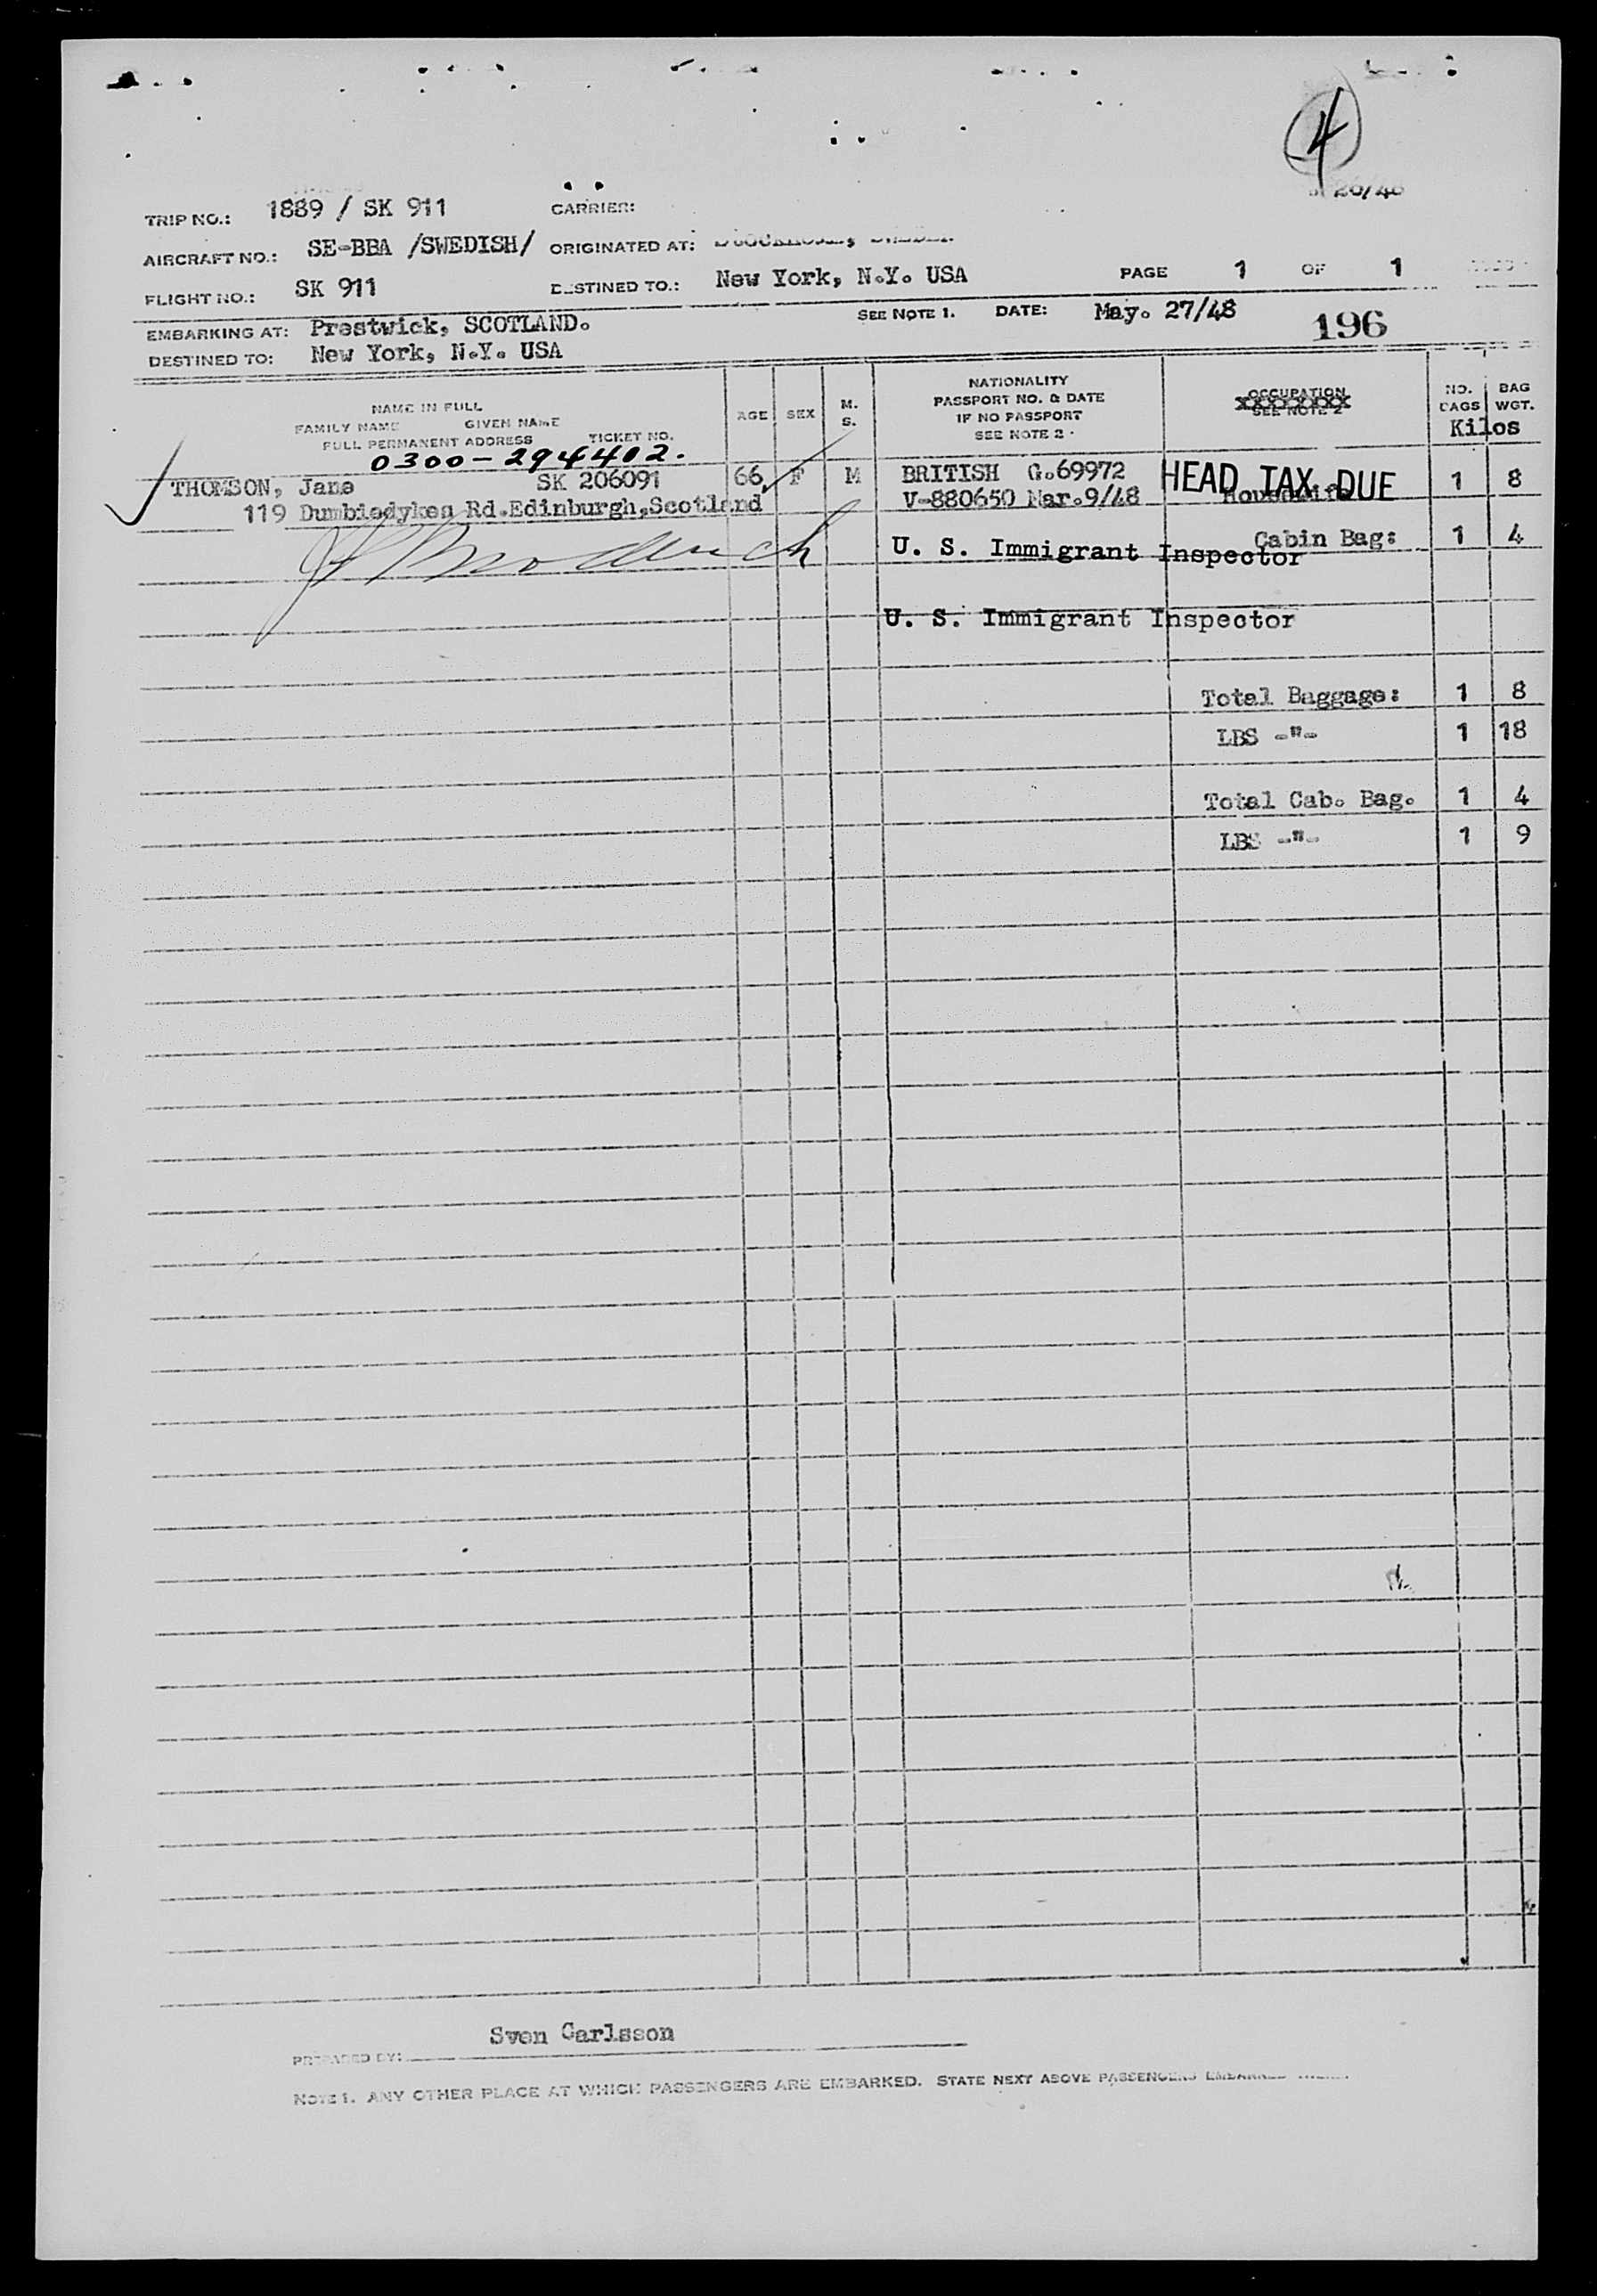 4
26/48
TRIP NO.: 1889 / SK 911 CARRIER:
AIRCRAFT NO.: SE-BBA /SWEDISH/ ORIGINATED AT:
FLIGHT NO.: SK 911 DESTINED TO.: New York, N.Y. USA PAGE 1 OF 1
EMBARKING AT: Prestwick, SCOTLAND. SEE NOTE 1. DATE: May. 27/48 196
DESTINED TO: New York, N.Y. USA
NAME IN FULL
FAMILY NAME GIVEN NAME
FULL PERMANENT ADDRESS TICKET NO.
AGE SEX M. S.
NATIONALITY
PASSPORT NO. & DATE
IF NO PASSPORT
SEE NOTE 2
OCCUPATION
SEE NOTE 2
NO. BAGS BAG WGT.
Kilos
0300-294402.
THOMSON, Jane SK 206091 66 F M BRITISH G.69972 HEAD TAX DUE Housewife 1 8
119 Dumbiedykes Rd.Edinburgh,Scotland V-880650 Mar.9/48
U. S. Immigrant Inspector Cabin Bag: 1 4
U. S. Immigrant Inspector
Total Baggage: 1 8
LBS -"- 1 18
Total Cab. Bag. 1 4
LBS -"- 1 9
Sven Carlsson
PREPARED BY:
NOTE 1. ANY OTHER PLACE AT WHICH PASSENGERS ARE EMBARKED. STATE NEXT ABOVE PASSENGERS EMBARKED